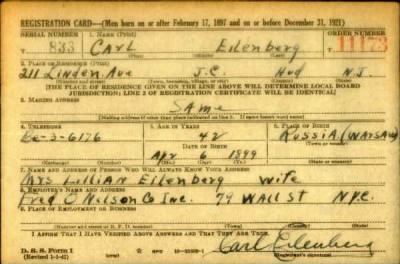 REGISTRATION CARD—(Men born on or after February 17, 1897 and on or before December 31, 1921)
SERIAL NUMBER 1. NAME (Print) ORDER NUMBER
T 833 CARL Eilenberg 11173
(First) (Middle) (Last)
2. PLACE OF RESIDENCE (Print)
211 Linden Ave J.C. Hud N.J.
(Number and street) (Town, township, village, or city) (County) (State)
[THE PLACE OF RESIDENCE GIVEN ON THE LINE ABOVE WILL DETERMINE LOCAL BOARD
JURISDICTION; LINE 2 OF REGISTRATION CERTIFICATE WILL BE IDENTICAL]
3. MAILING ADDRESS
SAME
[Mailing address if other than place indicated on line 2. If same insert word same]
4. TELEPHONE 5. AGE IN YEARS 6. PLACE OF BIRTH
3-6176 42 RUSSIA (WARSAW)
DATE OF BIRTH
Apr 6 1899
(Mo.) (Day) (Yr.) (State or country)
7. NAME AND ADDRESS OF PERSON WHO WILL ALWAYS KNOW YOUR ADDRESS
MRS Lillian Eilenberg wife
8. EMPLOYER'S NAME AND ADDRESS
Fred O Nelson Co Inc. 79 WALL ST N.Y.C.
9. PLACE OF EMPLOYMENT OR BUSINESS
(Number and street or R. F. D. number) (Town) (County) (State)
I AFFIRM THAT I HAVE VERIFIED ABOVE ANSWERS AND THAT THEY ARE TRUE.
D. S. S. Form 1
(Revised 1-1-42) (over) Carl Eilenberg
(Registrant's signature)